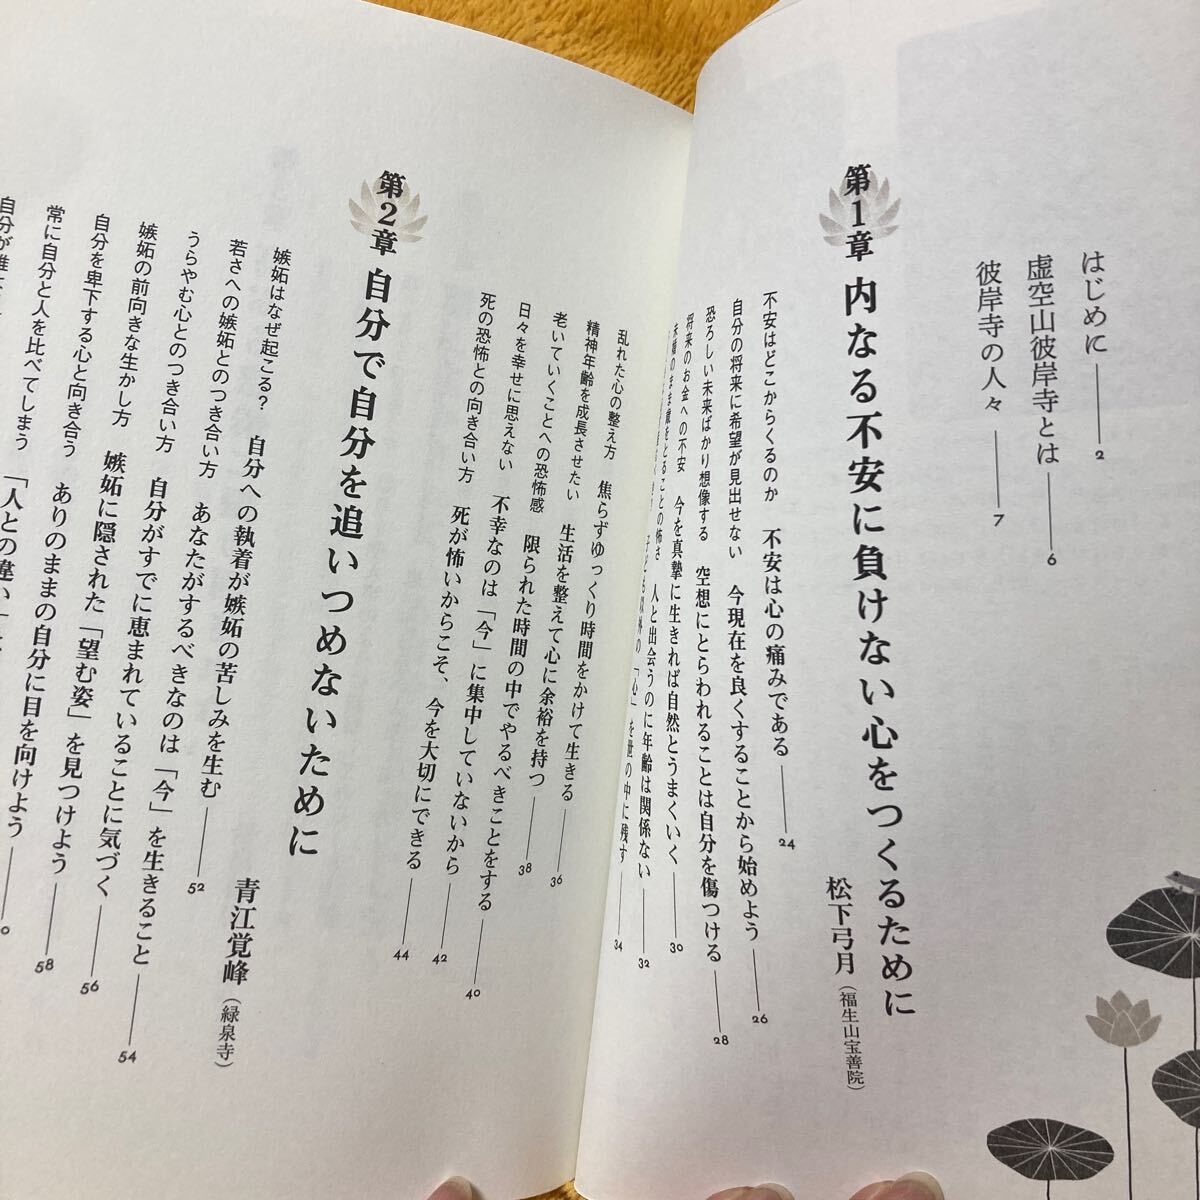 はじめに 2
虚空山彼岸寺とは 6
彼岸寺の人々 7
第1章 内なる不安に負けない心をつくるために
松下弓月（福生山宝善院）
不安はどこからくるのか 不安は心の痛みである 24
自分の将来に希望が見出せない 今現在を良くすることから始めよう 26
恐ろしい未来ばかり想像する 空想にとらわれることは自分を傷つける 28
将来のお金への不安 今を真摯に生きれば自然とうまくいく 30
未婚のまま歳をとることの怖さ 人と出会うのに年齢は関係ない 32
子ども以外の「心」を世の中に残す 34
乱れた心の整え方 焦らずゆっくり時間をかけて生きる 36
精神年齢を成長させたい 生活を整えて心に余裕を持つ 38
老いていくことへの恐怖感 限られた時間の中でやるべきことをする 40
日々を幸せに思えない 不幸なのは「今」に集中していないから 42
死の恐怖との向き合い方 死が怖いからこそ、今を大切にできる 44
第2章 自分で自分を追いつめないために
青江覚峰（緑泉寺）
嫉妬はなぜ起こる？ 自分への執着が嫉妬の苦しみを生む 52
若さへの嫉妬とのつき合い方 あなたがするべきなのは「今」を生きること 54
うらやむ心とのつき合い方 自分がすでに恵まれていることに気づく 56
嫉妬の前向きな生かし方 嫉妬に隠された「望む姿」を見つけよう 58
自分を卑下する心と向き合う ありのままの自分に目を向けよう
常に自分と人を比べてしまう 「人との違い」
自分が誰